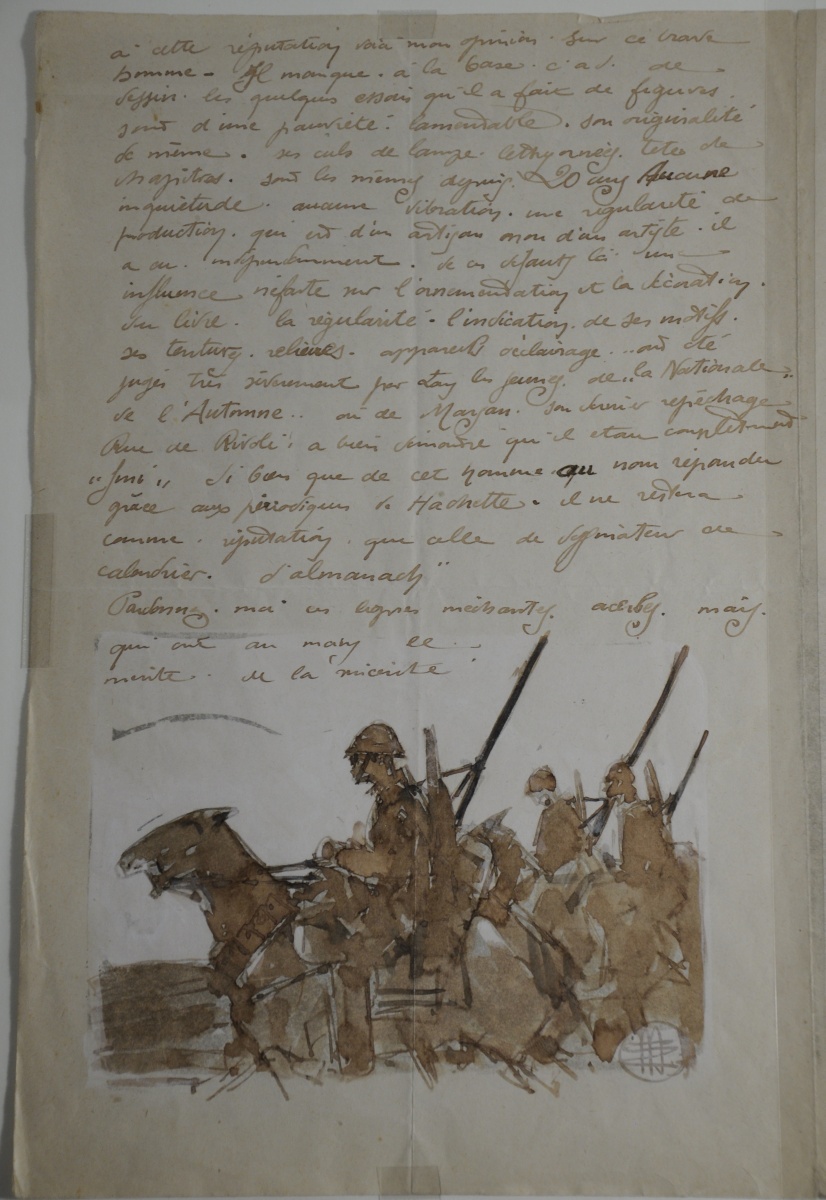 à cette réputation voici mon opinion. Sur ce brave
homme - Il manque. à la base. c.a.d. de
dessin. les quelques essais qu'il a fait de figures.
sont d'une pauvreté. lamentable. son originalité
de même. ses culs de lampe. têtes de
chapitres. sont les mêmes depuis. 20 ans Aucune
inquiétude. aucune vibration. une régularité de
production. qui est d'un artisan non d'un artiste. il
a eu. indépendamment. de ces défauts là une
influence néfaste sur l'ornementation et la décoration.
du livre. la régularité. l'indication. de ses motifs.
ses reliures. éclairage... ont été
jugés très sévèrement par les jeunes. de "la Nationale"
de l'Automne.. ou de Marsan. son dernier repêchage
Rue de Rivoli, a bien démontré qu'il était complètement
"fini" Si bien que de cet homme au nom répandu
grâce aux périodiques de Hachette. il ne restera
comme. réputation. que celle de dessinateur de
calendrier. d'almanach"
moi ces lignes méchantes. acerbes. mais.
qui ont au moins le..
mérite. de la sincérité.